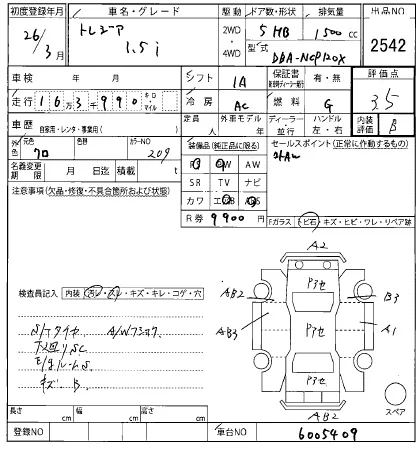 初度登録年月 車名・グレード 駆動 ドア数・形状 排気量 出品NO
26年 3月 トレジア 1.5i 2WD 4WD 5 HB 1500cc 2542
型式 DBA-NCP120X
車検 年 月 シフト IA 保証書 有・無 評価点 3.5
走行 16万3千990 キロ・マイル 冷房 AC 燃料 G
車歴 自家用・レンタ・事業用( ) 定員 人 外車モデル 年 ディーラー・並行 ハンドル 左・右 内装評価 B
外色 元色 クロ 色替 カラーNO 209 装備品(純正品に限る) セールスポイント(正常に作動するもの)
名義変更期限 月 日迄 積載 t PS PW AW
SR TV ナビ
カワ エアB ABS
注意事項(欠品・修復・不具合箇所および状態) R券 9900円
Fガラス トビ石・キズ・ヒビ・ワレ・リペア跡
検査員記入 内装 汚レ・スレ・キズ・キレ・コゲ・穴
S/Tタイヤ A/Wフショク
下廻りSC
E/gルームS
キズ B
A2
P3セ
AB2 P3セ B3
AB3 A1
P3セ
AB2
スペア
長さ cm 幅 cm 高さ cm
登録NO 車台NO 6005409